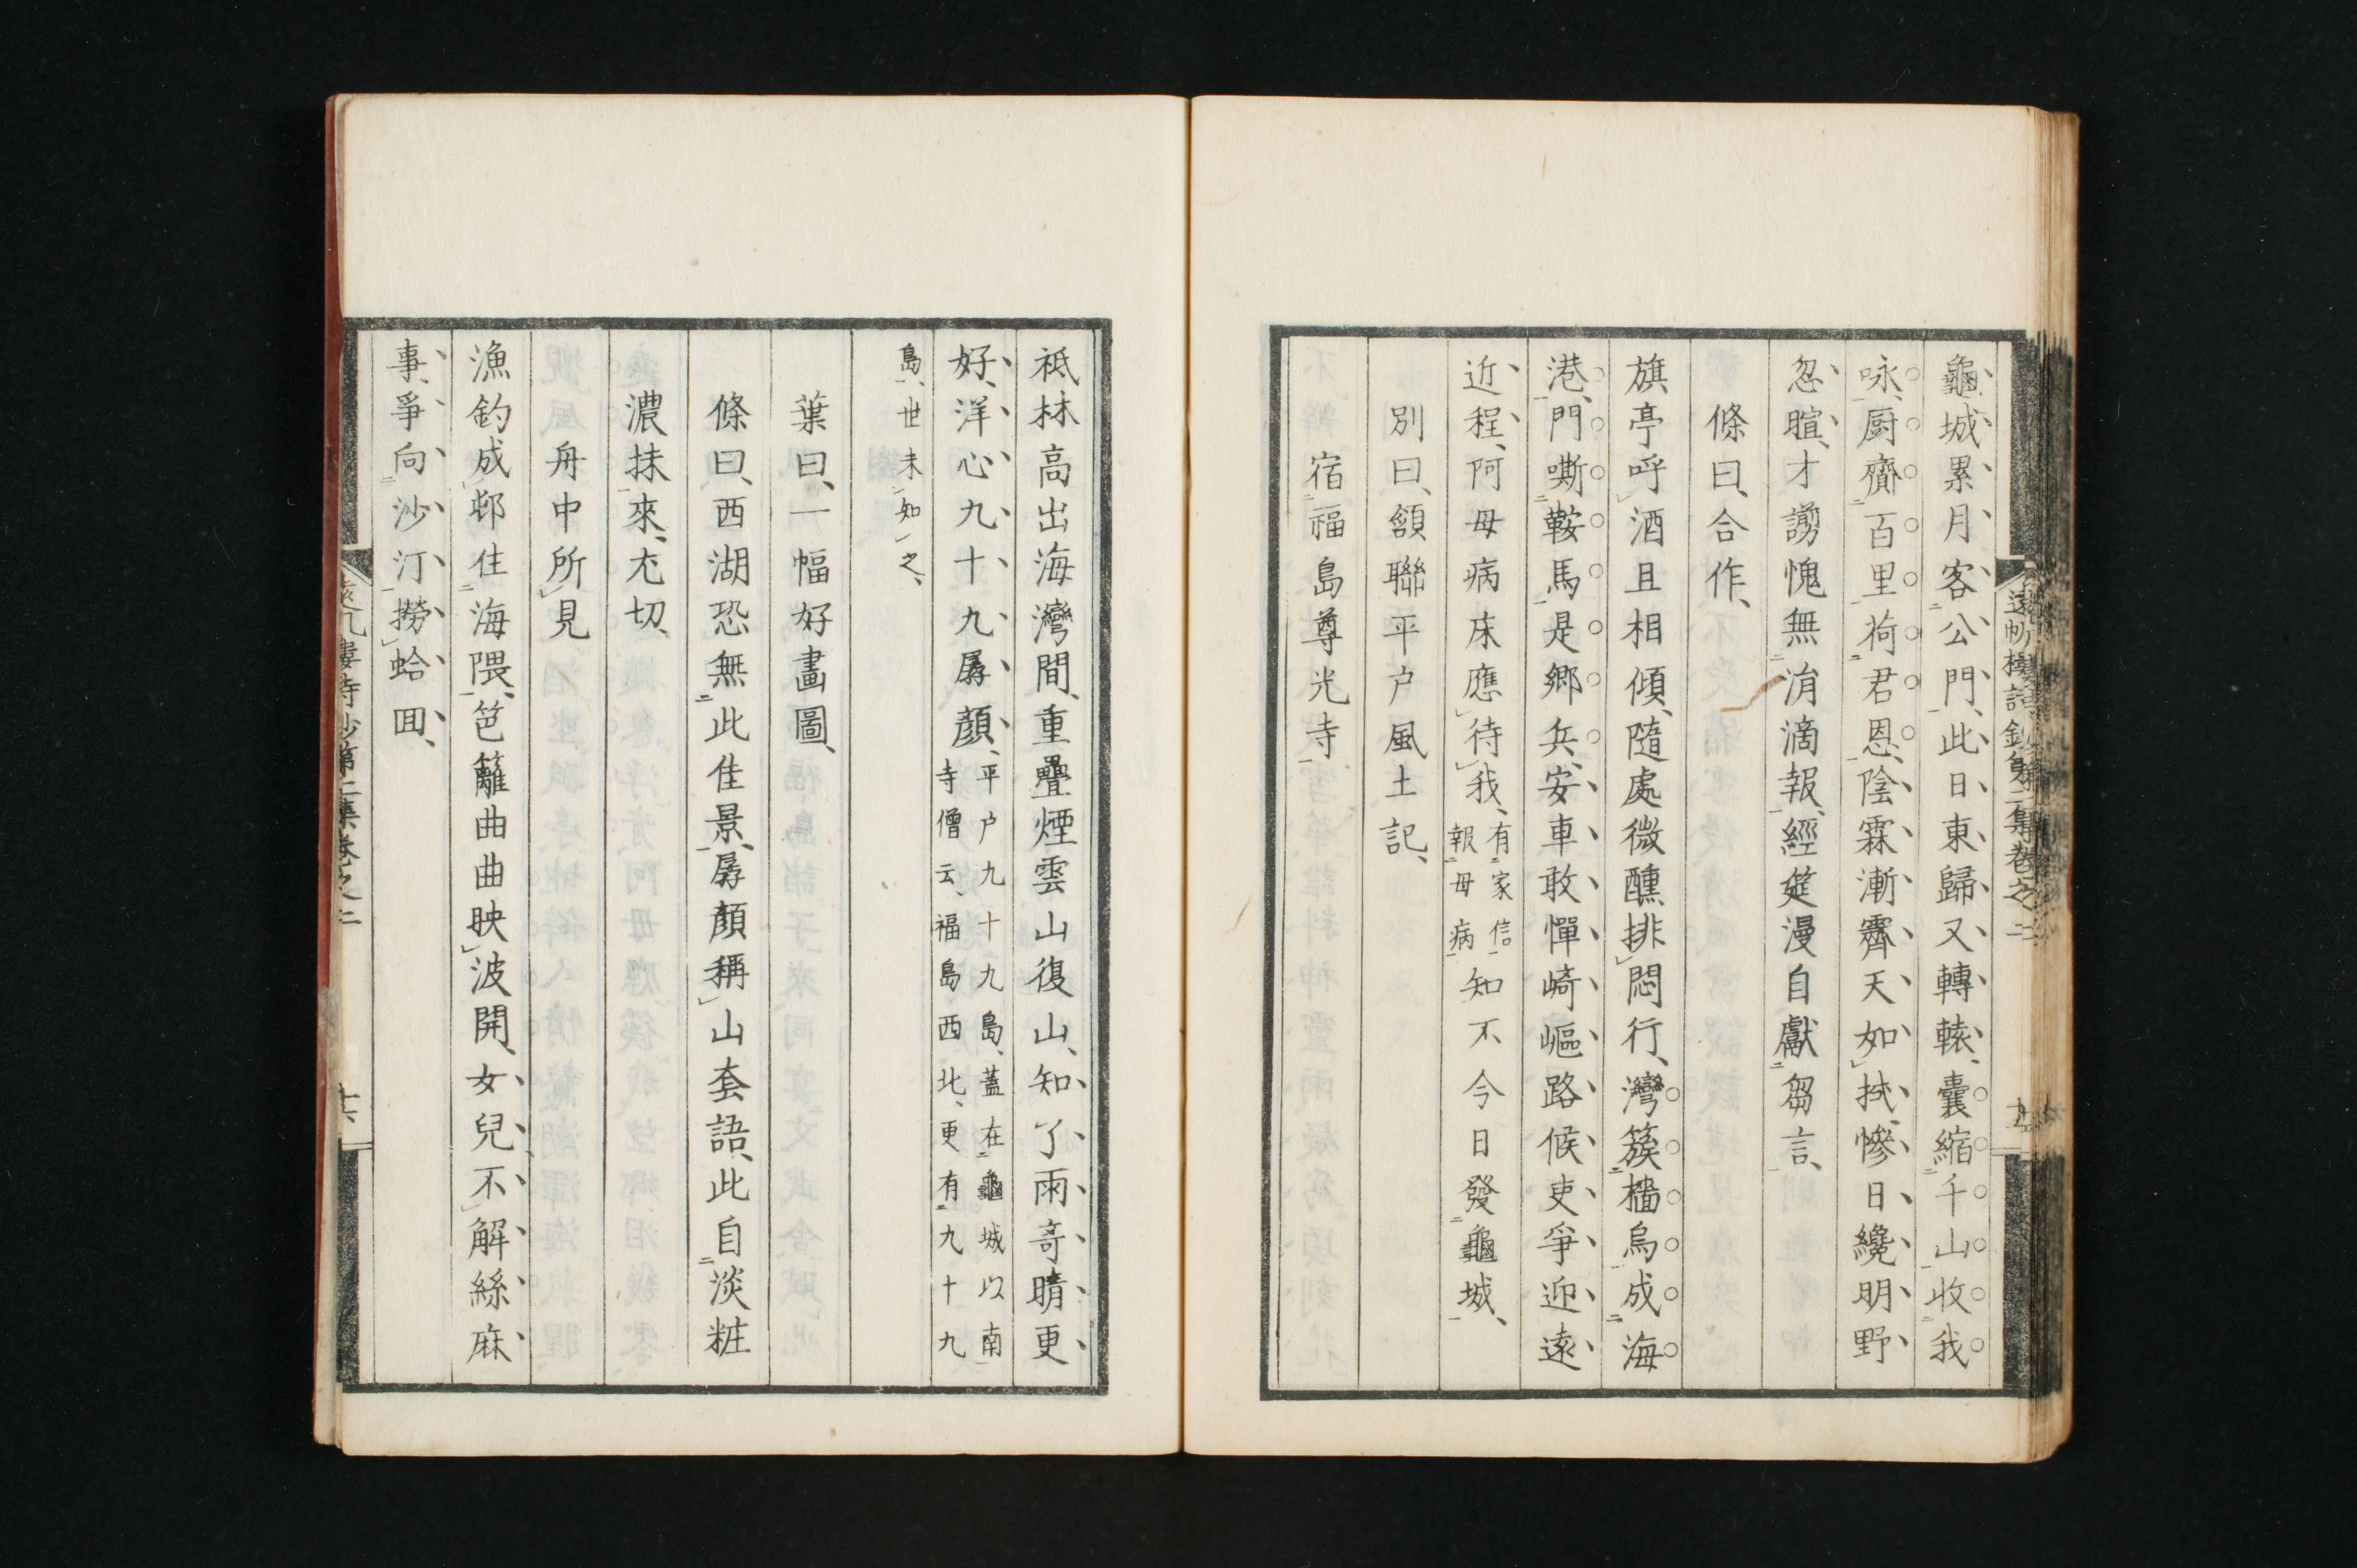 龜城累月客公門、此日東歸又轉轅、囊縮千山收我
咏、厨齎百里荷君恩、陰霖漸霽天如拭、慘日纔明野
忽暄、才謭愧無涓滴報、經筵漫自獻芻言、
條曰、合作、
旗亭呼酒且相傾、隨處微醺排悶行、灣簇檣烏成海
港、門嘶鞍馬是鄉兵、安車敢憚崎嶇路、候吏爭迎遠
近程、阿母病床應待我、有家信報母病知不今日發龜城、
別曰、頷聯平户風土記、
宿福島尊光寺
祗林高出海灣間、重疊煙雲山復山、知了雨奇晴更
好、洋心九十九孱顏、平户九十九島、蓋在龜城以南寺僧云、福島西北、更有九十九
島、世未知之、
葉曰、一幅好畫圖、
條曰、西湖恐無此佳景、孱顏稱山套語、此自淡粧
濃抹來、尢切、
舟中所見
漁釣成邨住海隈、笆籬曲曲映波開、女兒不解絲麻
事、爭向沙汀撈蛤回、